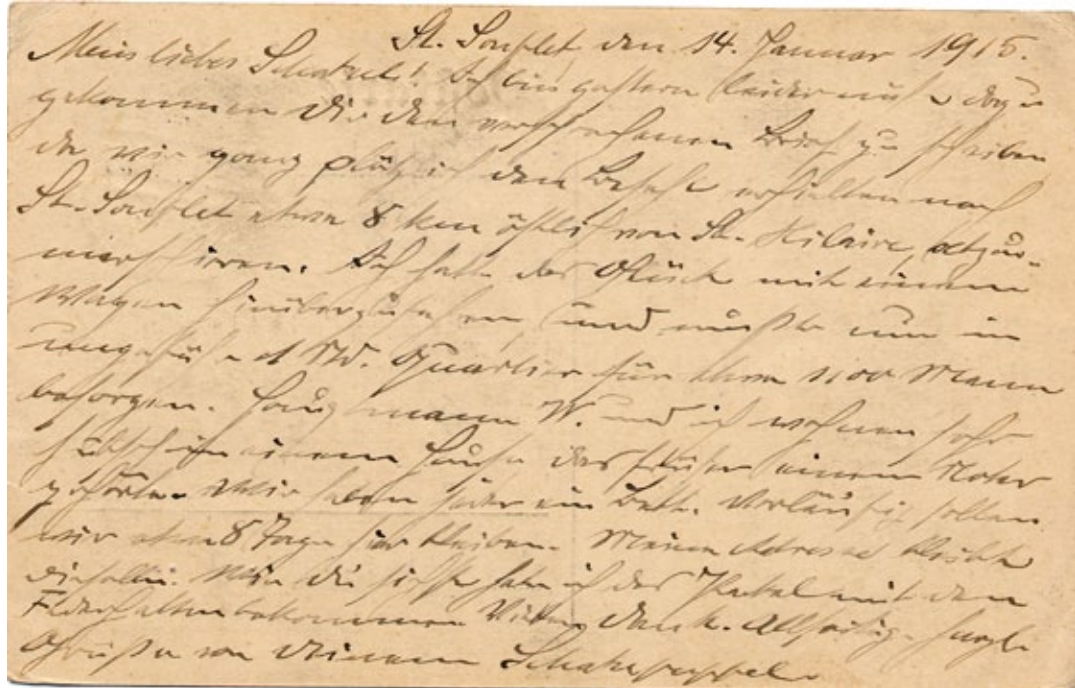 St. Souplet, den 14. Januar 1915.
Mein liebes Schatzeli! Ich bin gestern leider nicht dazu
gekommen Dir den versprochenen Brief zu schreiben
da wir ganz plötzlich den Befehl erhielten nach
St. Souplet etwa 8 km östlich von St. Hilaire, abzu-
marschieren. Ich hatte das Glück mit einem
Wagen hinüberzufahren und mußte nun in
ungefähr 1 Std. Quartier für etwa 1100 Mann
besorgen. Hauptmann W. und ich wohnen sehr
hübsch in einem Hause das früher einem Notar
gehörte. Wir haben jeder ein Bett. Vorläufig sollen
wir etwa 8 Tage hier bleiben. Meine Adresse bleibt
dieselbe. Wie Du siehst habe ich das Paket mit dem
Federhalter bekommen Vielen Dank. Allseitig herzl.
Grüße von Deinem